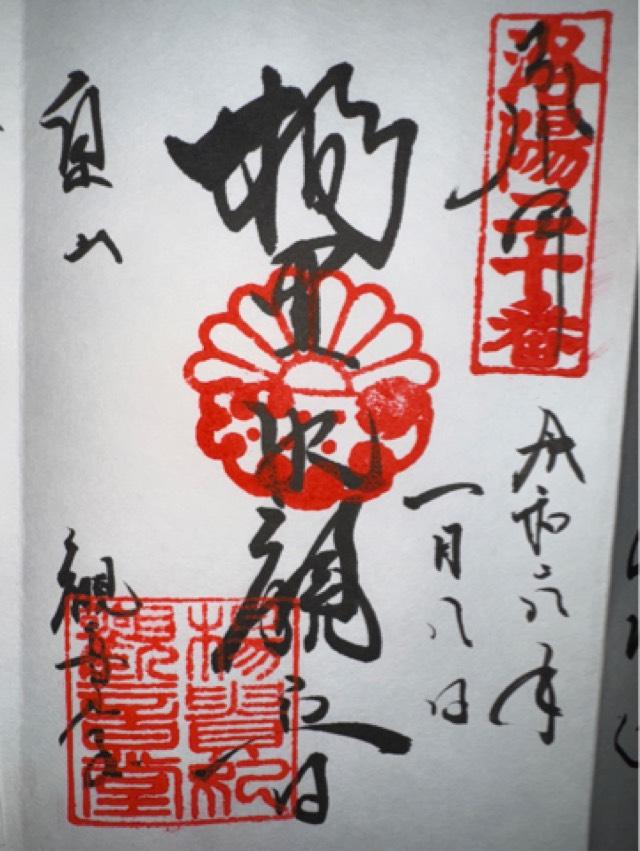 奉拝
洛陽二十番
令和六年
一月八日
楊貴妃観音
泉山
観音堂
楊貴妃
観音堂